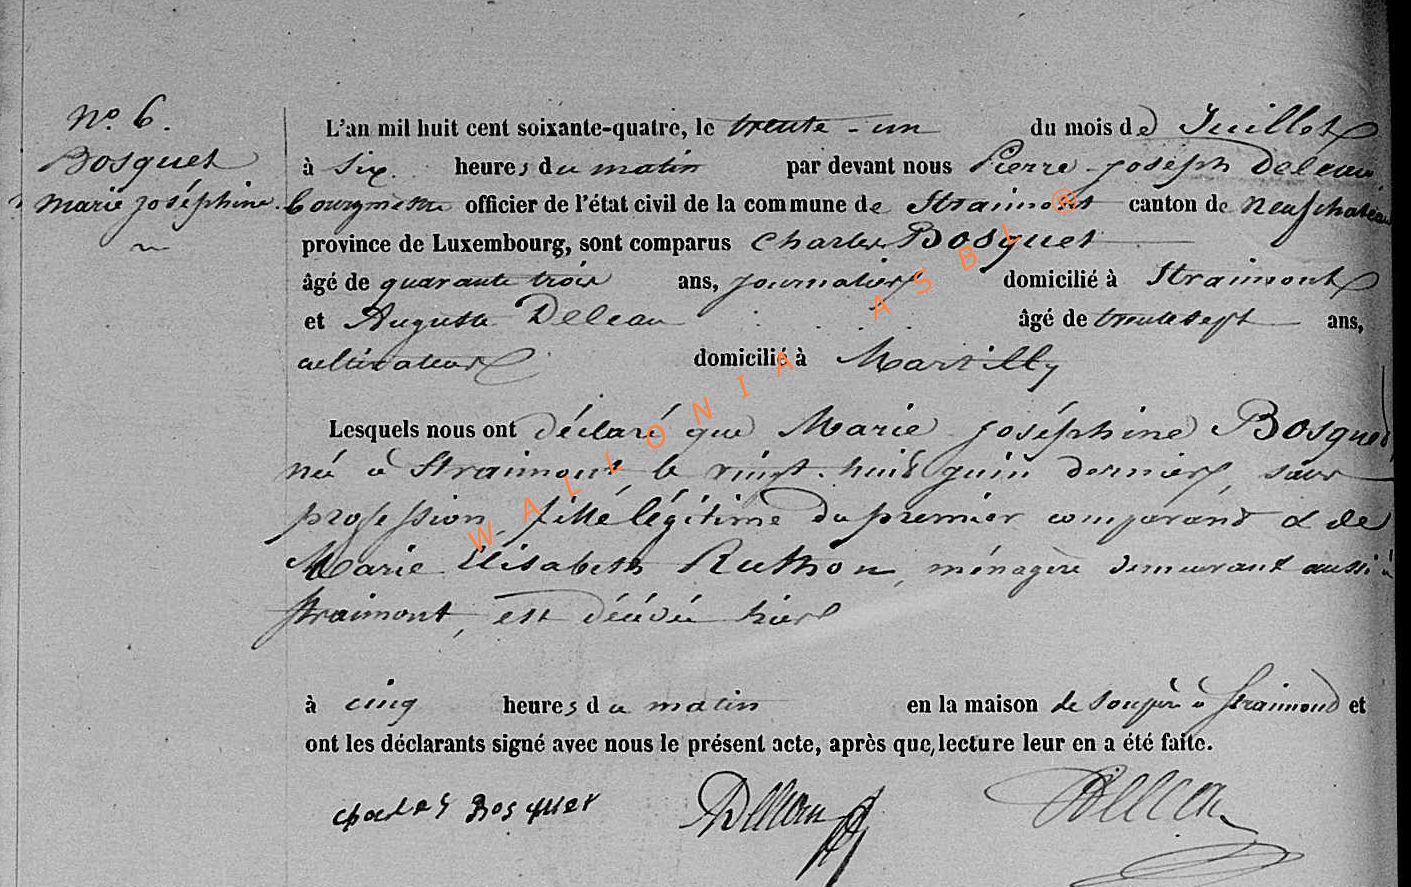 N.º 6.
Bosquet
Marie joséphine.
L'an mil huit cent soixante-quatre, le trente-un du mois de Juillet
à six heures du matin par devant nous Pierre joseph Deleau,
bourgmestre officier de l'état civil de la commune de Straimont canton de Neufchateau
province de Luxembourg, sont comparus Charles Bosquet
âgé de quarante trois ans, journalier domicilié à Straimont
et Auguste Deleau âgé de trente sept ans,
cultivateur domicilié à Martilly
Lesquels nous ont déclaré que Marie joséphine Bosquet,
née à Straimont, le vingt-huit juin dernier, sans
profession, fille légitime du premier comparant & de
Marie Elisabeth Ruthon, ménagère demeurant aussi à
Straimont, est décédée hier
à cinq heures du matin en la maison de son père à Straimond et
ont les déclarants signé avec nous le présent acte, après que lecture leur en a été faite.
charles Bosquet Deleau Deleau
WALLONIA ASBL ®